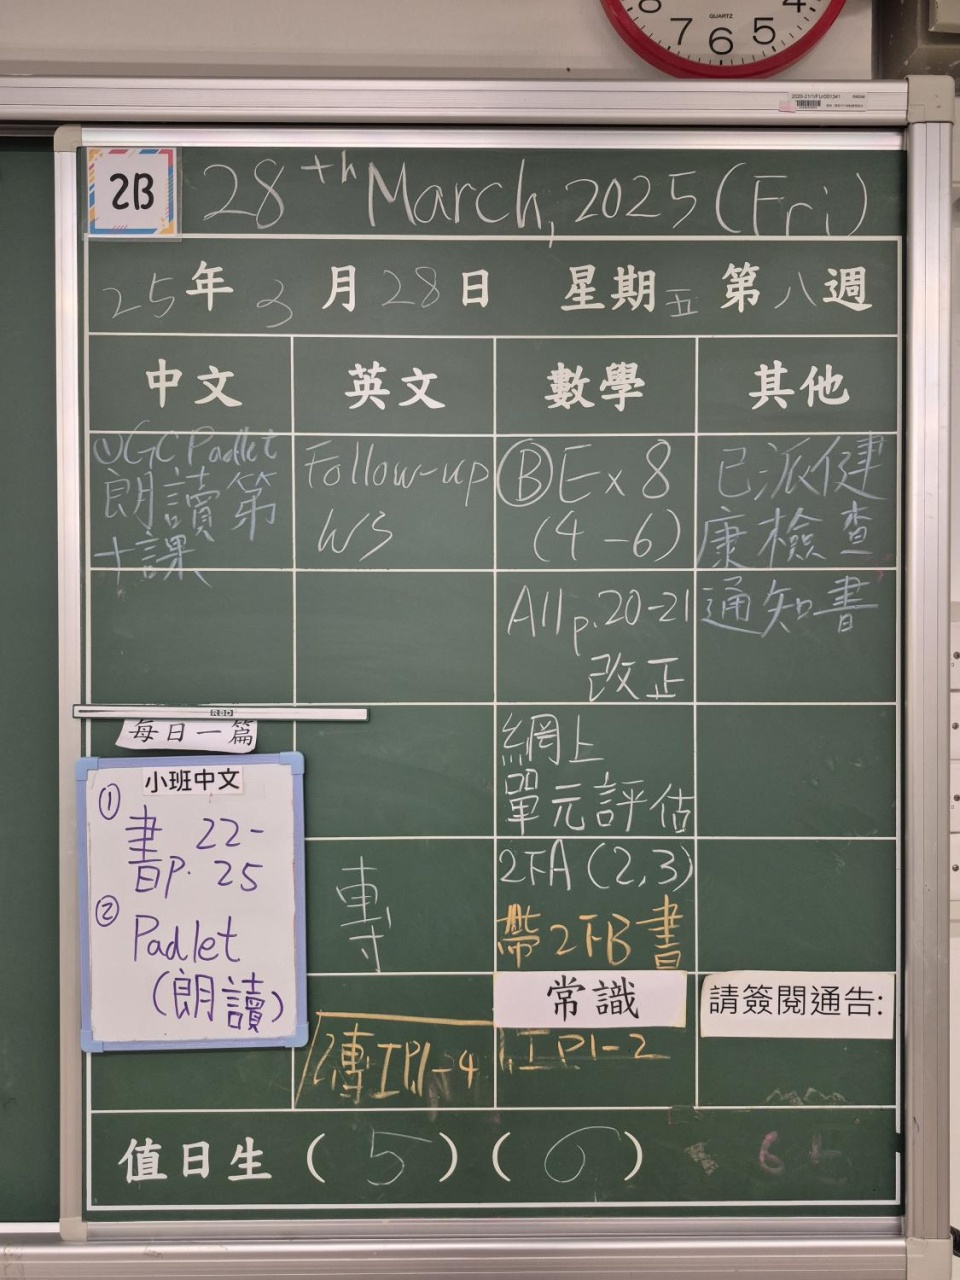 4
8
QUARTZ
7 6 5
2B
28th March, 2025 (Fri)
25年 3月 28日 星期五 第八週
中文 英文 數學 其他
①GC Padlet
朗讀第
十課
Follow-up
WS
ⒷEx 8
(4-6)
已派健
康檢查
通知書
All p.20-21
改正
RBD
每日一篇
網上
單元評估
小班中文
①
書 22-
p. 25
②
Padlet
(朗讀)
專
2下A (2,3)
帶2下B書
常識
請簽閱通告:
工P.1-4
工P.1-2
值日生 ( 5 ) ( 6 )
64